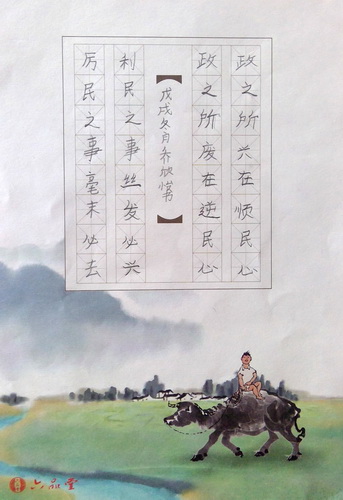 政之所兴在顺民心
政之所废在逆民心
【戊戌冬月乔欣怡书】
利民之事丝发必兴
厉民之事毫末必去
六品堂